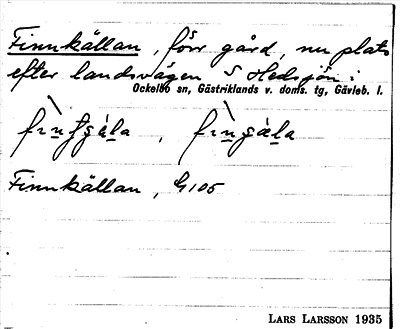 Finnkällan, förr gård, nu plats
efter landsvägen S Hedsjön:
Ockelbo sn, Gästriklands v. doms. tg, Gävleb. l.
Finnkällan, G 105
LARS LARSSON 1935